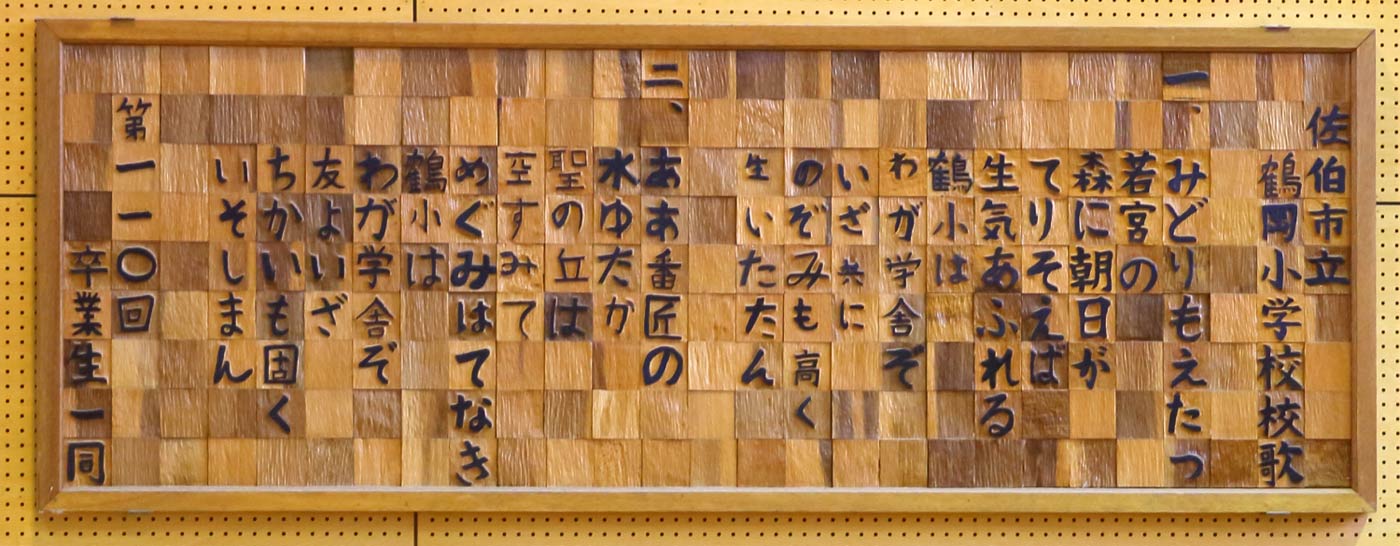 佐伯市立
鶴岡小学校校歌
一、みどりもえたつ
若宮の
森に朝日が
てりそえば
生気あふれる
鶴小は
わが学舎ぞ
いざ共に
のぞみも高く
生いたたん
二、ああ番匠の
水ゆたか
聖の丘は
空すみて
めぐみはてなき
鶴小は
わが学舎ぞ
友よいざ
ちかいも固く
いそしまん
第一一〇回
卒業生一同